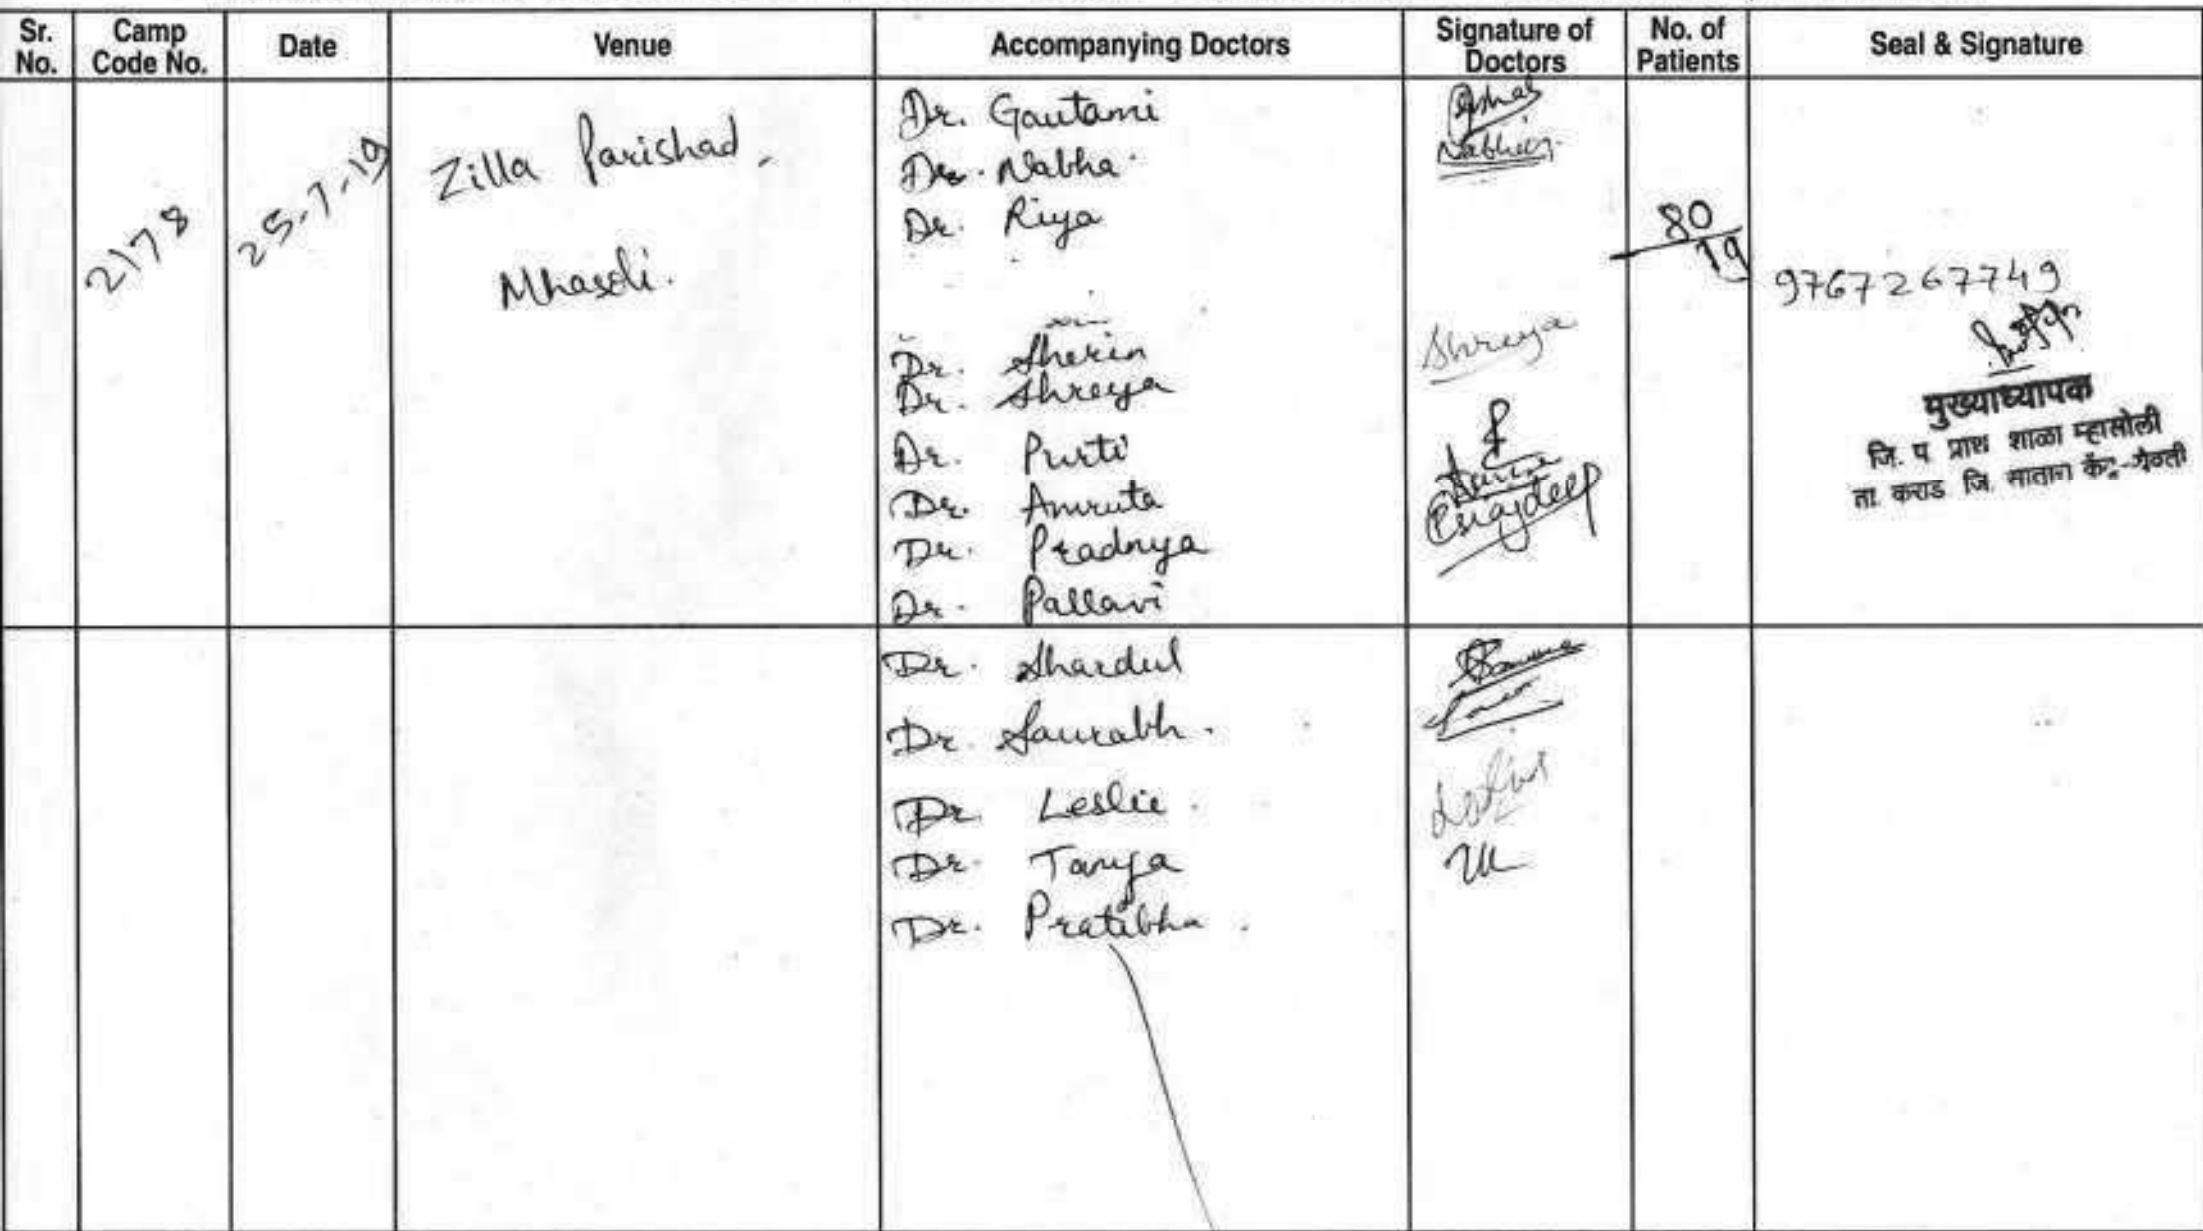 Sr. No.
Camp Code No.
Date
Venue
Accompanying Doctors
Signature of Doctors
No. of Patients
Seal & Signature
2178
25-7-19
Zilla Parishad,
Mhasoli.
Dr. Gautami
Dr. Nabha
Dr. Riya
Dr. Sherin
Dr. Shreya
Dr. Purti
Dr. Amruta
Dr. Pradnya
Dr. Pallavi
Shreya
80
19
9767267749
मुख्याध्यापक
जि. प प्राथ शाळा म्हासोली
ता. कराड जि. सातारा
Dr. Shardul
Dr. Saurabh.
Dr. Leslie
Dr. Tanya
Dr. Pratibha